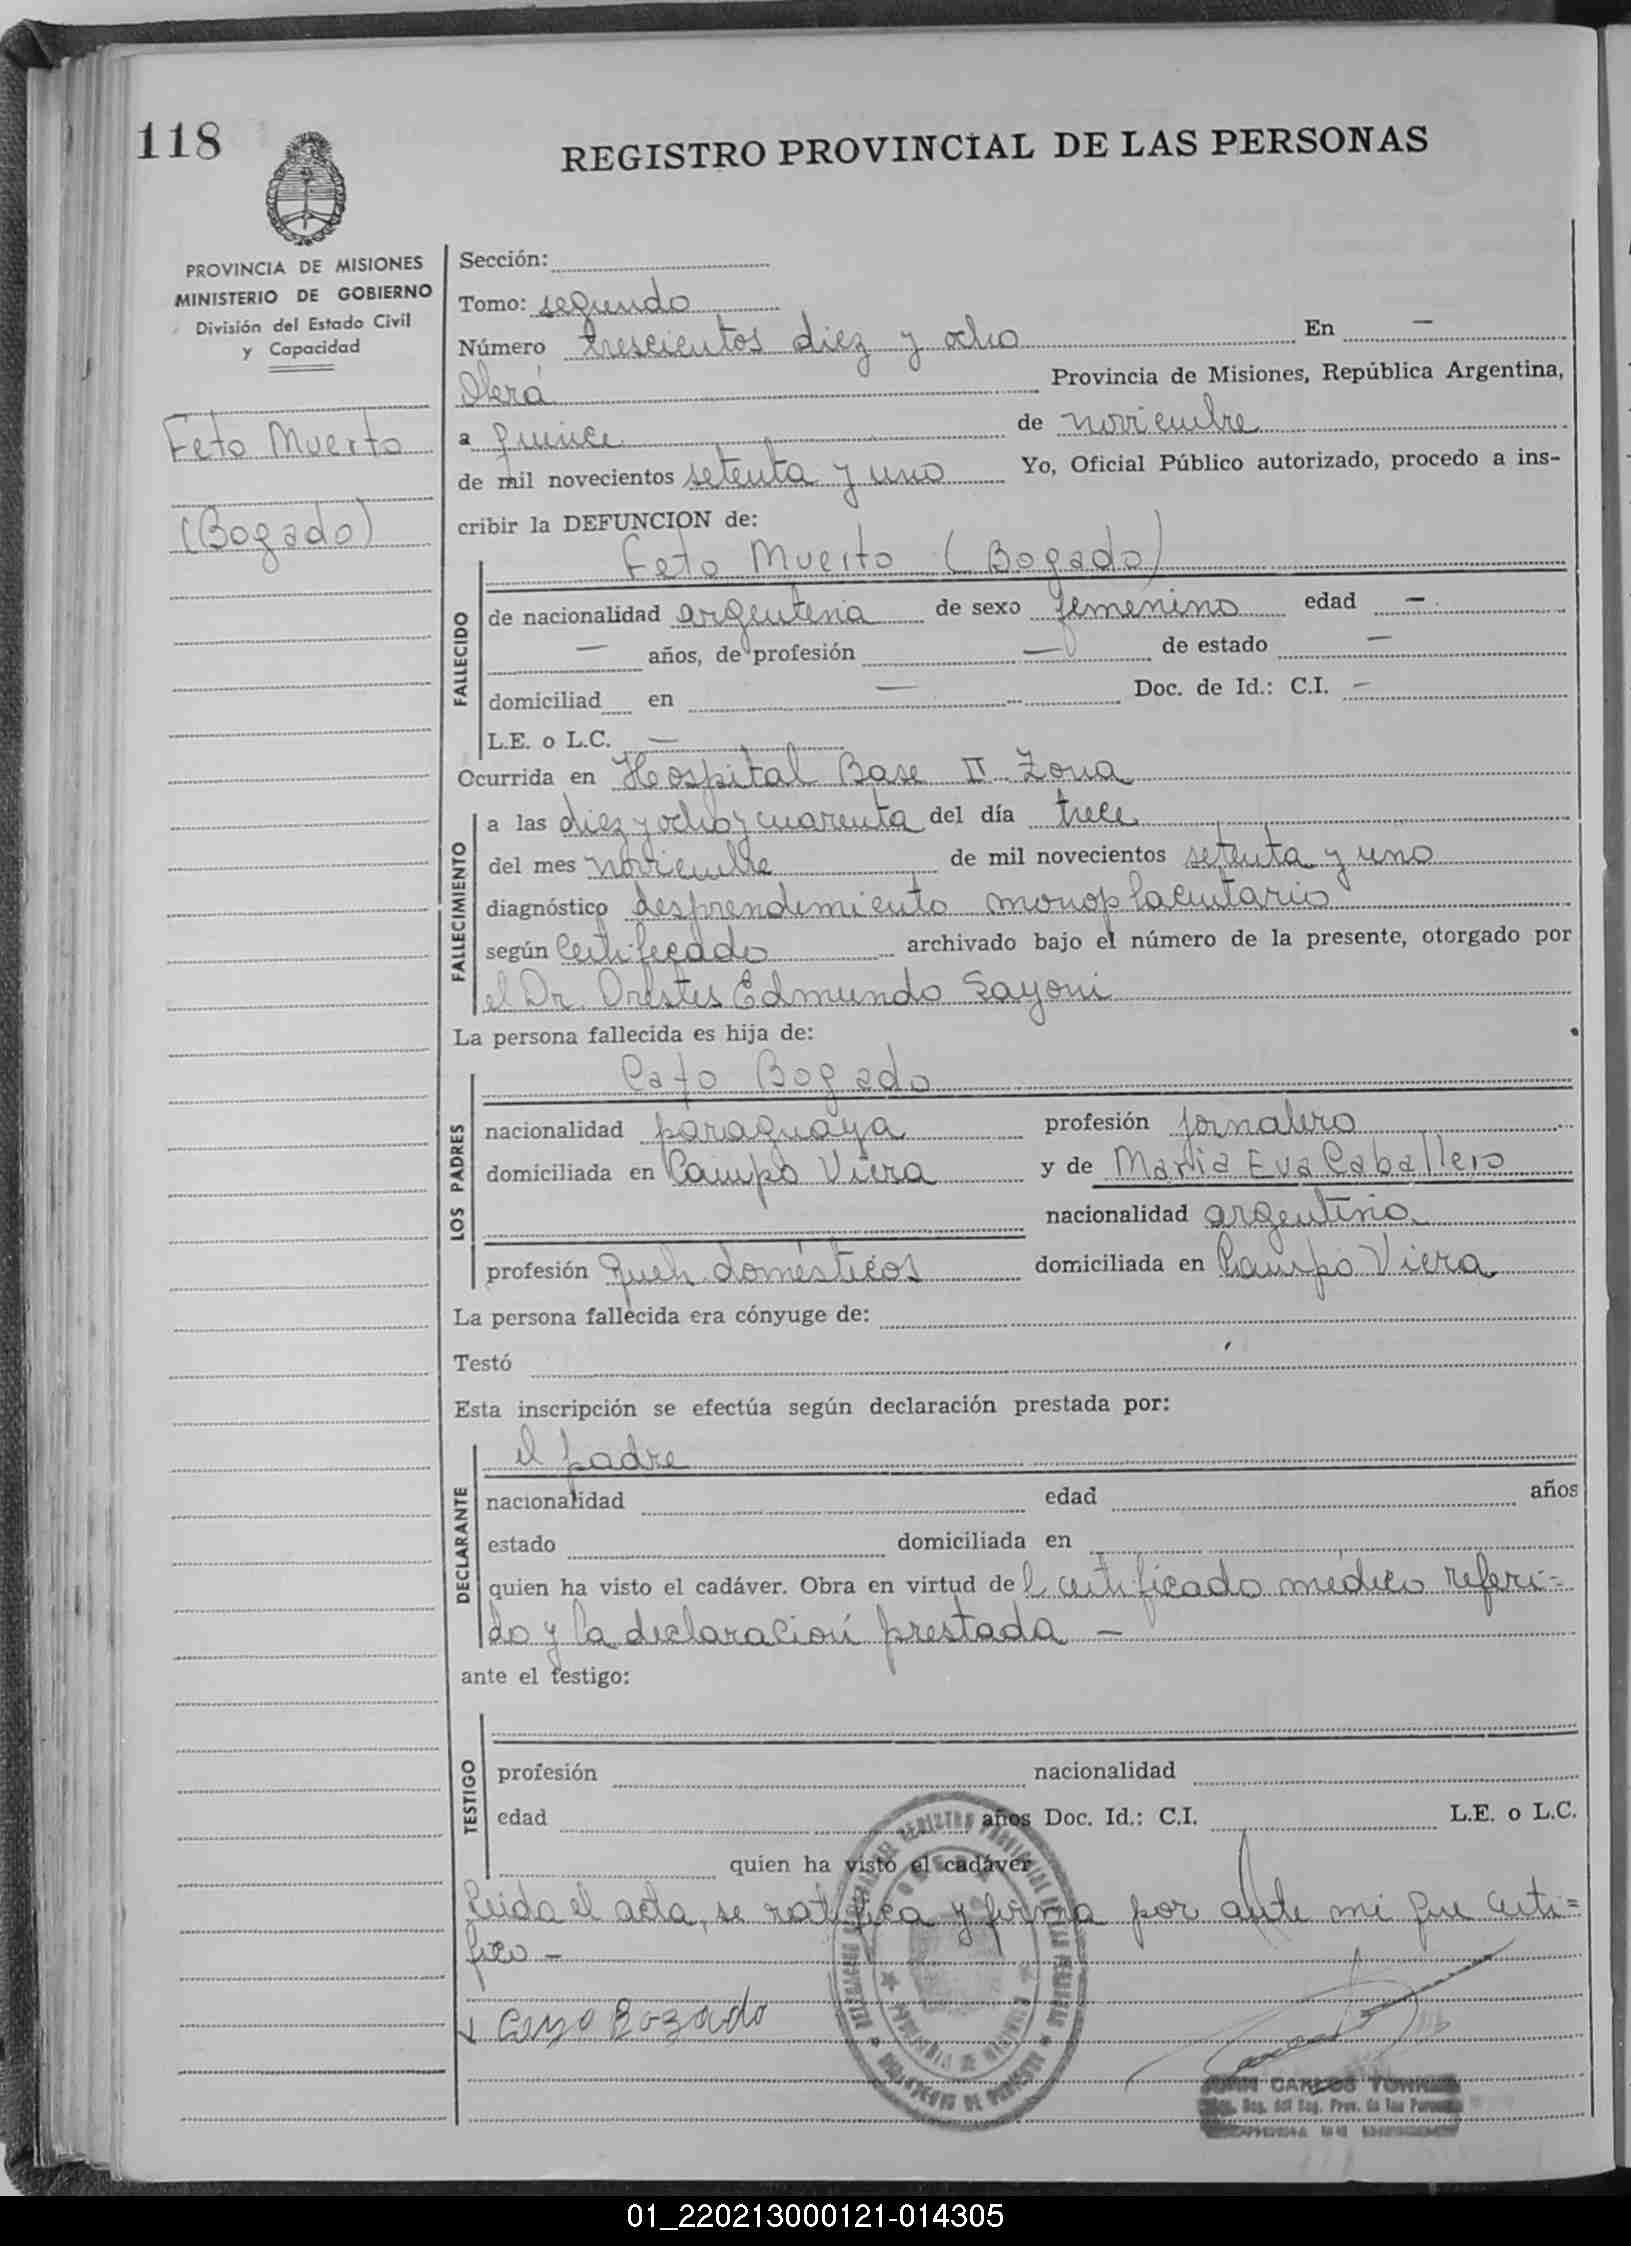 118
REGISTRO PROVINCIAL DE LAS PERSONAS
PROVINCIA DE MISIONES
MINISTERIO DE GOBIERNO
División del Estado Civil
y Capacidad
Feto Muerto
(Bogado)
Sección:
Tomo: segundo
Número trescientos diez y ocho En —
Oberá Provincia de Misiones, República Argentina,
a quince de noviembre
de mil novecientos setenta y uno Yo, Oficial Público autorizado, procedo a ins-
cribir la DEFUNCION de:
Feto Muerto (Bogado)
FALLECIDO
de nacionalidad argentina de sexo femenino edad —
— años, de profesión — de estado —
domiciliad en — Doc. de Id.: C.I. —
L.E. o L.C. —
Ocurrida en Hospital Base II Zona
FALLECIMIENTO
a las diez y ocho y cuarenta del día trece
del mes noviembre de mil novecientos setenta y uno
diagnóstico desprendimiento monoplacentario
según Certificado archivado bajo el número de la presente, otorgado por
el Dr. Orestes Edmundo Sayoni
La persona fallecida es hija de:
LOS PADRES
Cayo Bogado
nacionalidad paraguaya profesión jornalero
domiciliada en Campo Viera y de Maria Eva Caballero
nacionalidad argentina
profesión queh. domésticos domiciliada en Campo Viera
La persona fallecida era cónyuge de:
Testó
Esta inscripción se efectúa según declaración prestada por:
DECLARANTE
el padre
nacionalidad edad años
estado domiciliada en
quien ha visto el cadáver. Obra en virtud del certificado médico referi=
do y la declaración prestada —
ante el testigo:
TESTIGO
profesión nacionalidad
edad años Doc. Id.: C.I. L.E. o L.C.
quien ha visto el cadáver
Leida el acta, se ratifica y firma por ante mi que certi=
fico —
Cayo Bogado
JUAN CARLOS TORRES
01_220213000121-014305